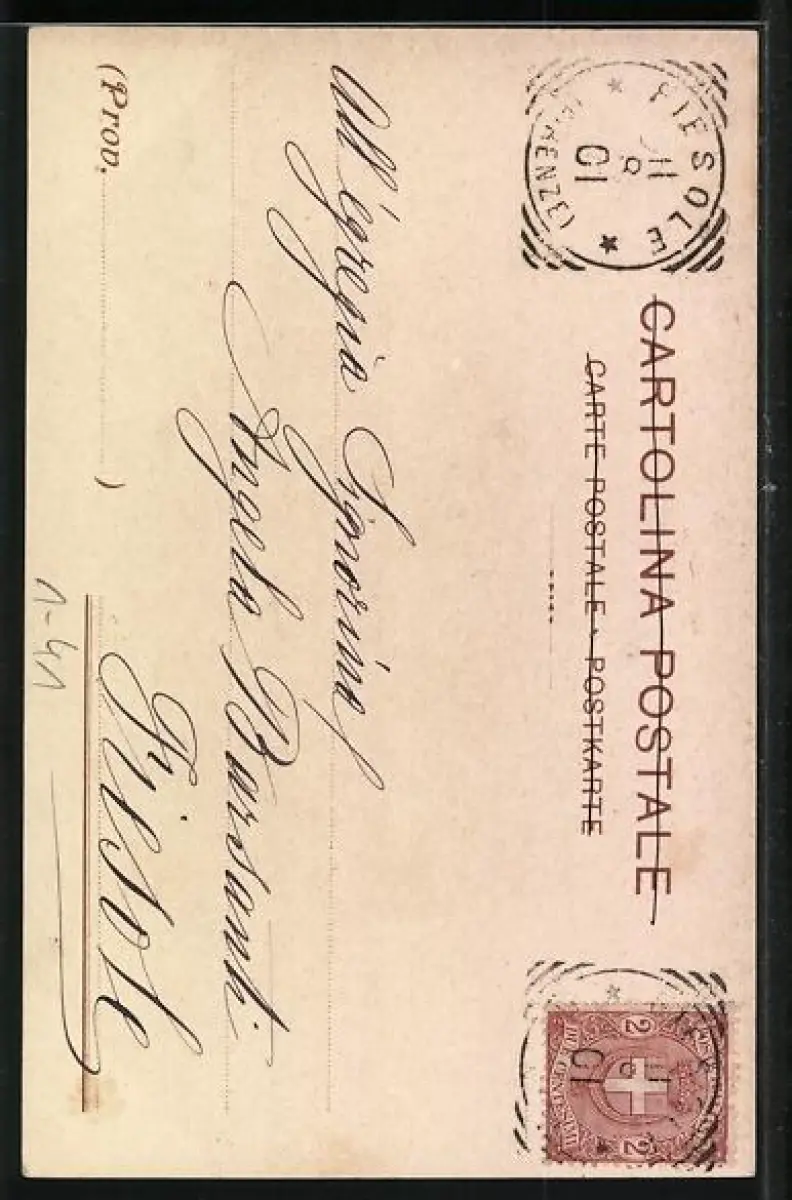 CARTOLINA POSTALE
CARTE POSTALE. POSTKARTE
FIESOLE
(FIRENZE)
8
01
2 2
DUE CENTESIMI
8
01
All'egregia Signorina
Angela Barsanti
Fiesole
(Prov. )
1-41